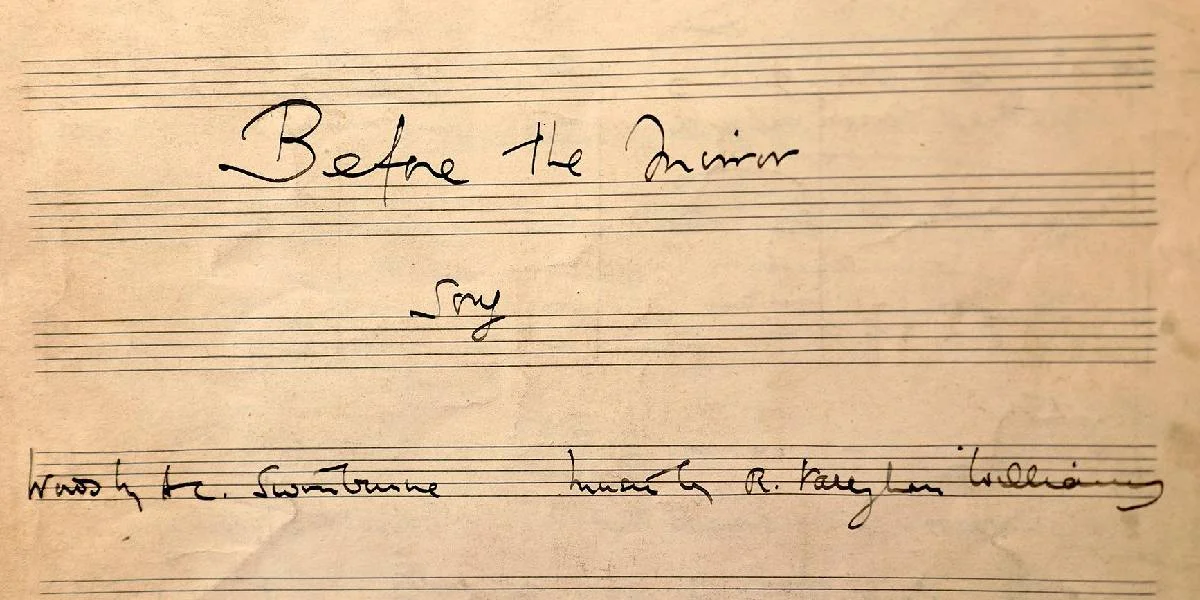 Before the Mirror
Song
Words by A.C. Swinburne Music by R. Vaughan Williams